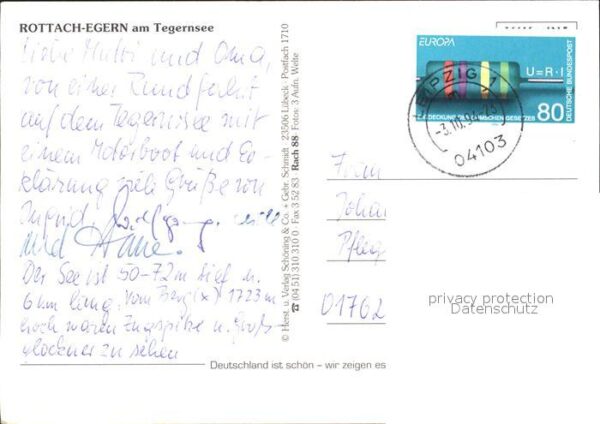 ROTTACH-EGERN am Tegernsee
Liebe Mutti und Oma,
von einer Rundfahrt
auf dem Tegernsee mit
einem Motorboot und Er-
klärung viele Grüße von
Ingrid, Wolfgang,
und
Der See ist 50-72 m tief u.
6 km lang. Vom 1723 m
hoch waren Zugspitze u. Groß-
glockner zu sehen
© Herst. u. Verlag Schöning & Co. + Gebr. Schmidt · 23506 Lübeck · Postfach 1710
☎ (04 51) 310 31 0 · Fax 3 52 83 Rach 88 Fotos: 3 Aufn. Welte
EUROPA
U=R·I
DEUTSCHE BUNDESPOST
80
LEIPZIG 1
04103
Frau
Johan
Pfleg
01762
privacy protection
Datenschutz
Deutschland ist schön – wir zeigen es